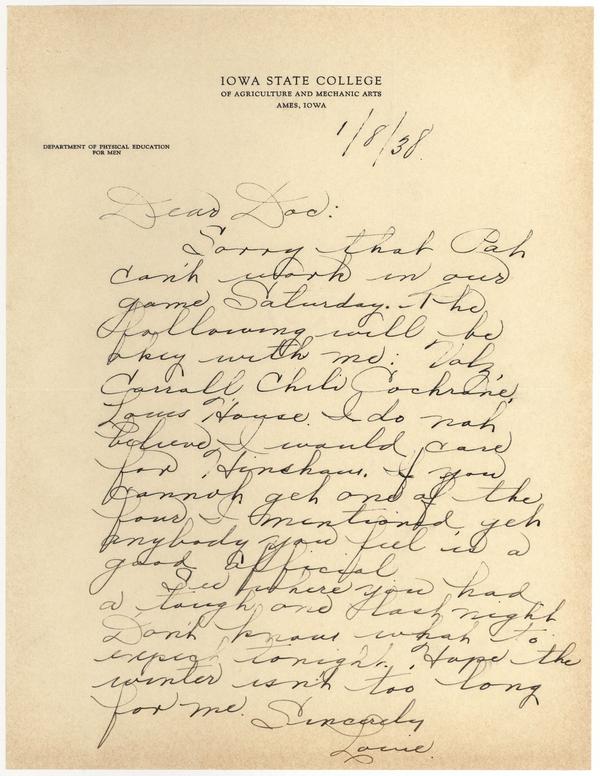 IOWA STATE COLLEGE
OF AGRICULTURE AND MECHANIC ARTS
AMES, IOWA
1/8/38.
DEPARTMENT OF PHYSICAL EDUCATION
FOR MEN
Dear Doc:
Sorry that Pat
can't work in our
game Saturday. The
following will be
okey with me: Volz,
Carroll, Chili Cochrane,
Louis House. I do not
believe I would care
for Hinshaw. If you
cannot get one of the
four I mentioned get
anybody you feel is a
good official
See where you had
a tough one last night
Don't know what to
expect tonight. Hope the
winter isn't too long
for me. Sincerely
Louie.